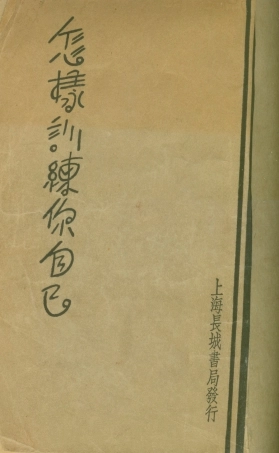 怎樣訓練你自己
上海長城書局發行